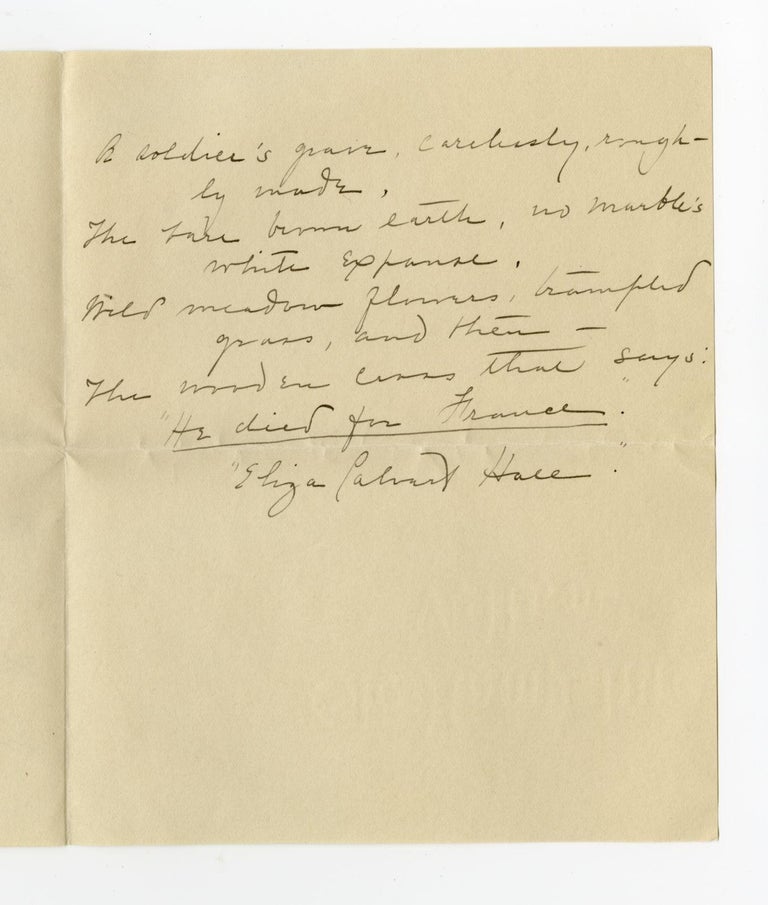 A soldier's grave, carelessly, rough-
ly made,
The bare brown earth, no marble's
white expanse.
Wild meadow flowers, trampled
grass, and then —
The wooden cross that says:
"He died for France".
"Eliza Calvert Hall."